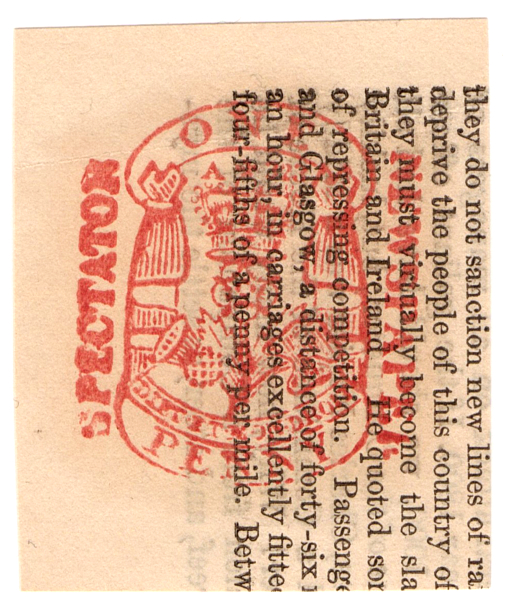 they do not sanction new lines of ra
deprive the people of this country of
they must virtually become the sla
Britain and Ireland He quoted sor
of repressing competition. Passenge
and Glasgow, a distance of forty-six
an hour, in carriages excellently fitte
four-fifths of a penny per mile. Betw
NEWSPAPER
ONE
DIEU ET MON DROIT
PENNY
SPECTATOR